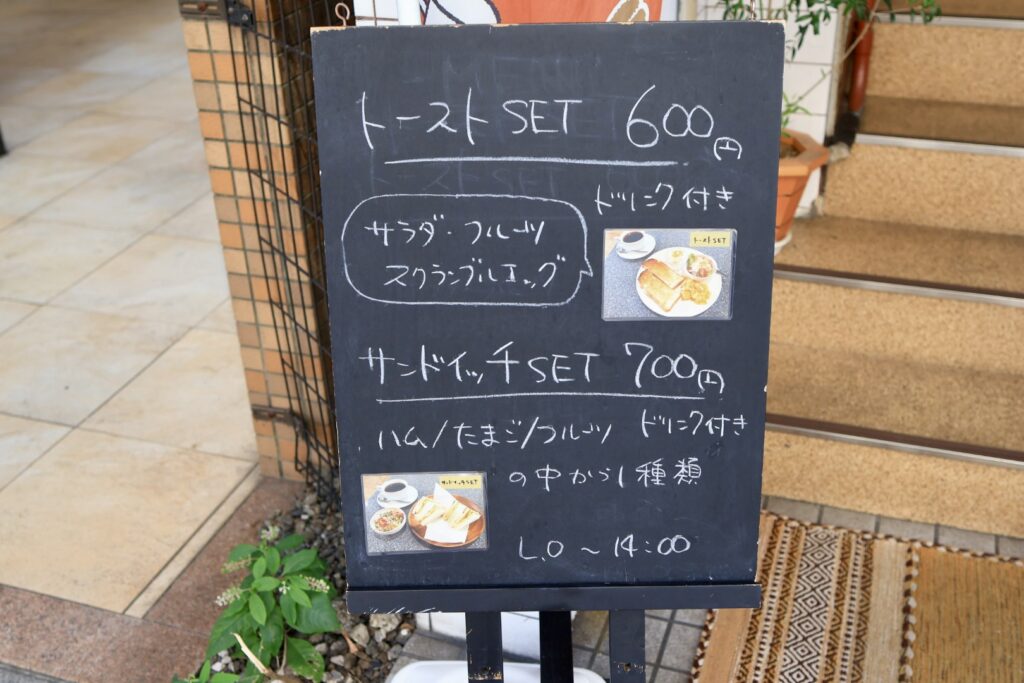 トーストSET 600円
ドリンク付き
サラダ・フルーツ
スクランブルエッグ
トーストSET
サンドイッチSET 700円
ハム/たまご/フルーツ ドリンク付き
の中から1種類
サンドイッチSET
L.O ~ 14:00